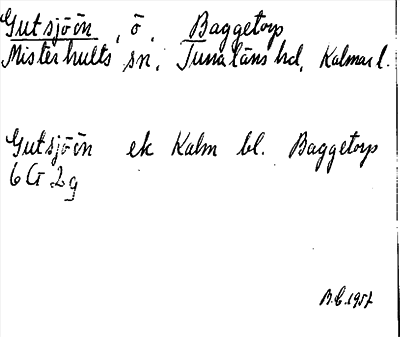 Gutsjöön, ö, Baggetorp
Misterhults sn, Tunaläns hd, Kalmar l.
Gutsjöön ek Kalm bl. Baggetorp
6 G 2g
B.C. 1957